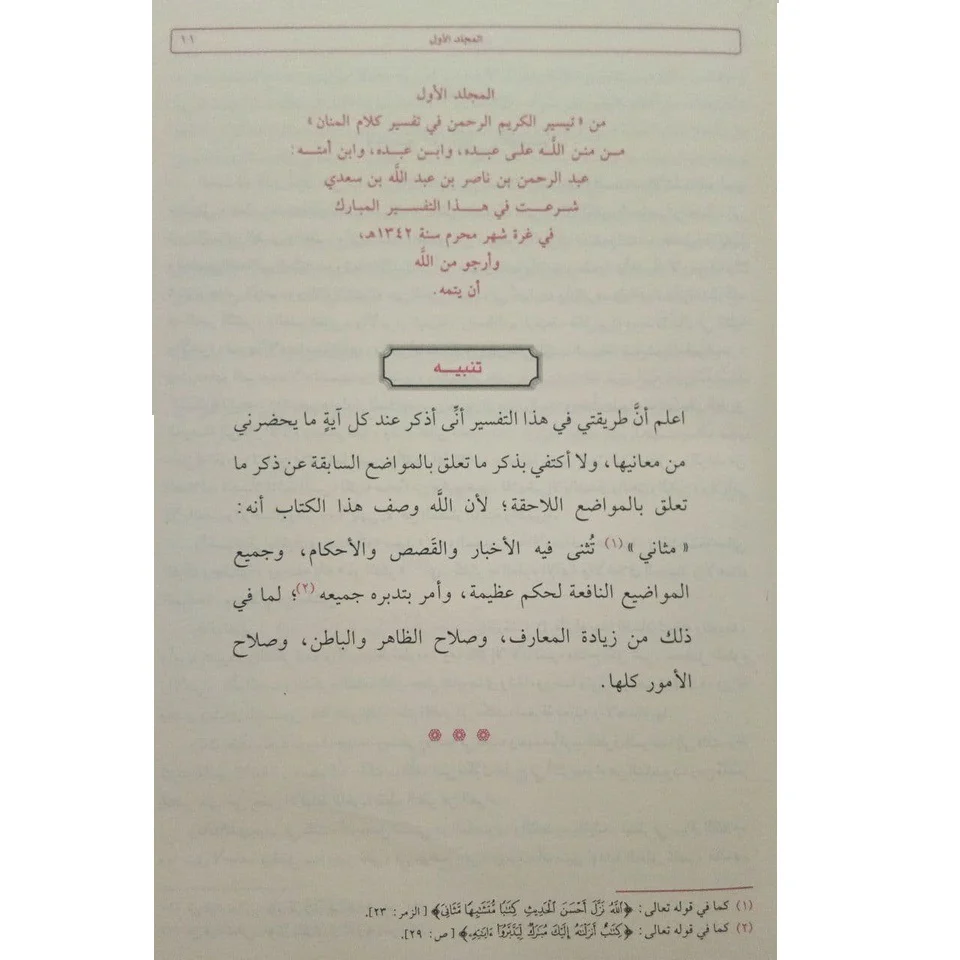 المجلد الأول
١٠١
المجلد الأول
من «تيسير الكريم الرحمن في تفسير كلام المنان»
مـن منن اللَّـه علـى عبـده، وابـن عبـده، وابن أمتـه:
عبد الرحمن بن ناصر بن عبد اللَّه بن سعدي
شرعـت في هـذا التفسـير المبارك
في غرة شهر محرم سنة ١٣٤٢هـ،
وأرجو من اللَّه
أن يتمه.
تنبيـه
اعلم أنَّ طريقتي في هذا التفسير أنِّى أذكر عند كل آيةٍ ما يحضرني
من معانيها، ولا أكتفي بذكر ما تعلق بالمواضع السابقة عن ذكر ما
تعلق بالمواضع اللاحقة؛ لأن اللَّه وصف هذا الكتاب أنه:
«مثاني»(١) تُثنى فيه الأخبار والقَصص والأحكام، وجميع
المواضيع النافعة لحكم عظيمة، وأمر بتدبره جميعه(٢)؛ لما في
ذلك من زيادة المعارف، وصلاح الظاهر والباطن، وصلاح
الأمور كلها.
(١) كما في قوله تعالى: ﴿اللَّهُ نَزَّلَ أَحْسَنَ الْحَدِيثِ كِتَٰبًا مُّتَشَٰبِهًا مَّثَانِىَ﴾ [الزمر: ٢٣].
(٢) كما في قوله تعالى: ﴿كِتَٰبٌ أَنزَلْنَٰهُ إِلَيْكَ مُبَٰرَكٌ لِّيَدَّبَّرُوٓا۟ ءَايَٰتِهِۦ﴾ [ص: ٢٩].